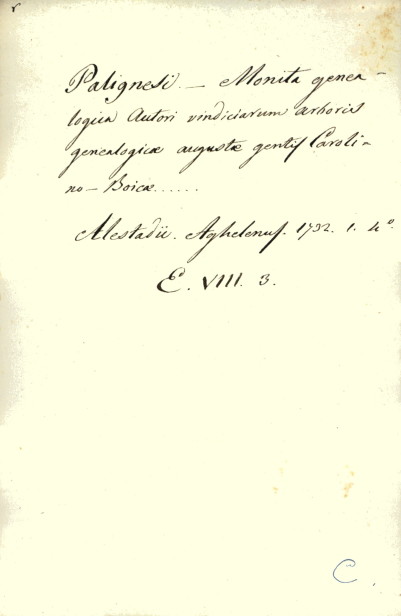 r
Palignesi. — Monita genea-
logica Autori vindiciarum arboris
genealogicæ augustæ gentis Caroli-
no-Boicæ......
Alestadii. Aghelenus. 1732. 1. 4º.
E. VIII. 3.
C